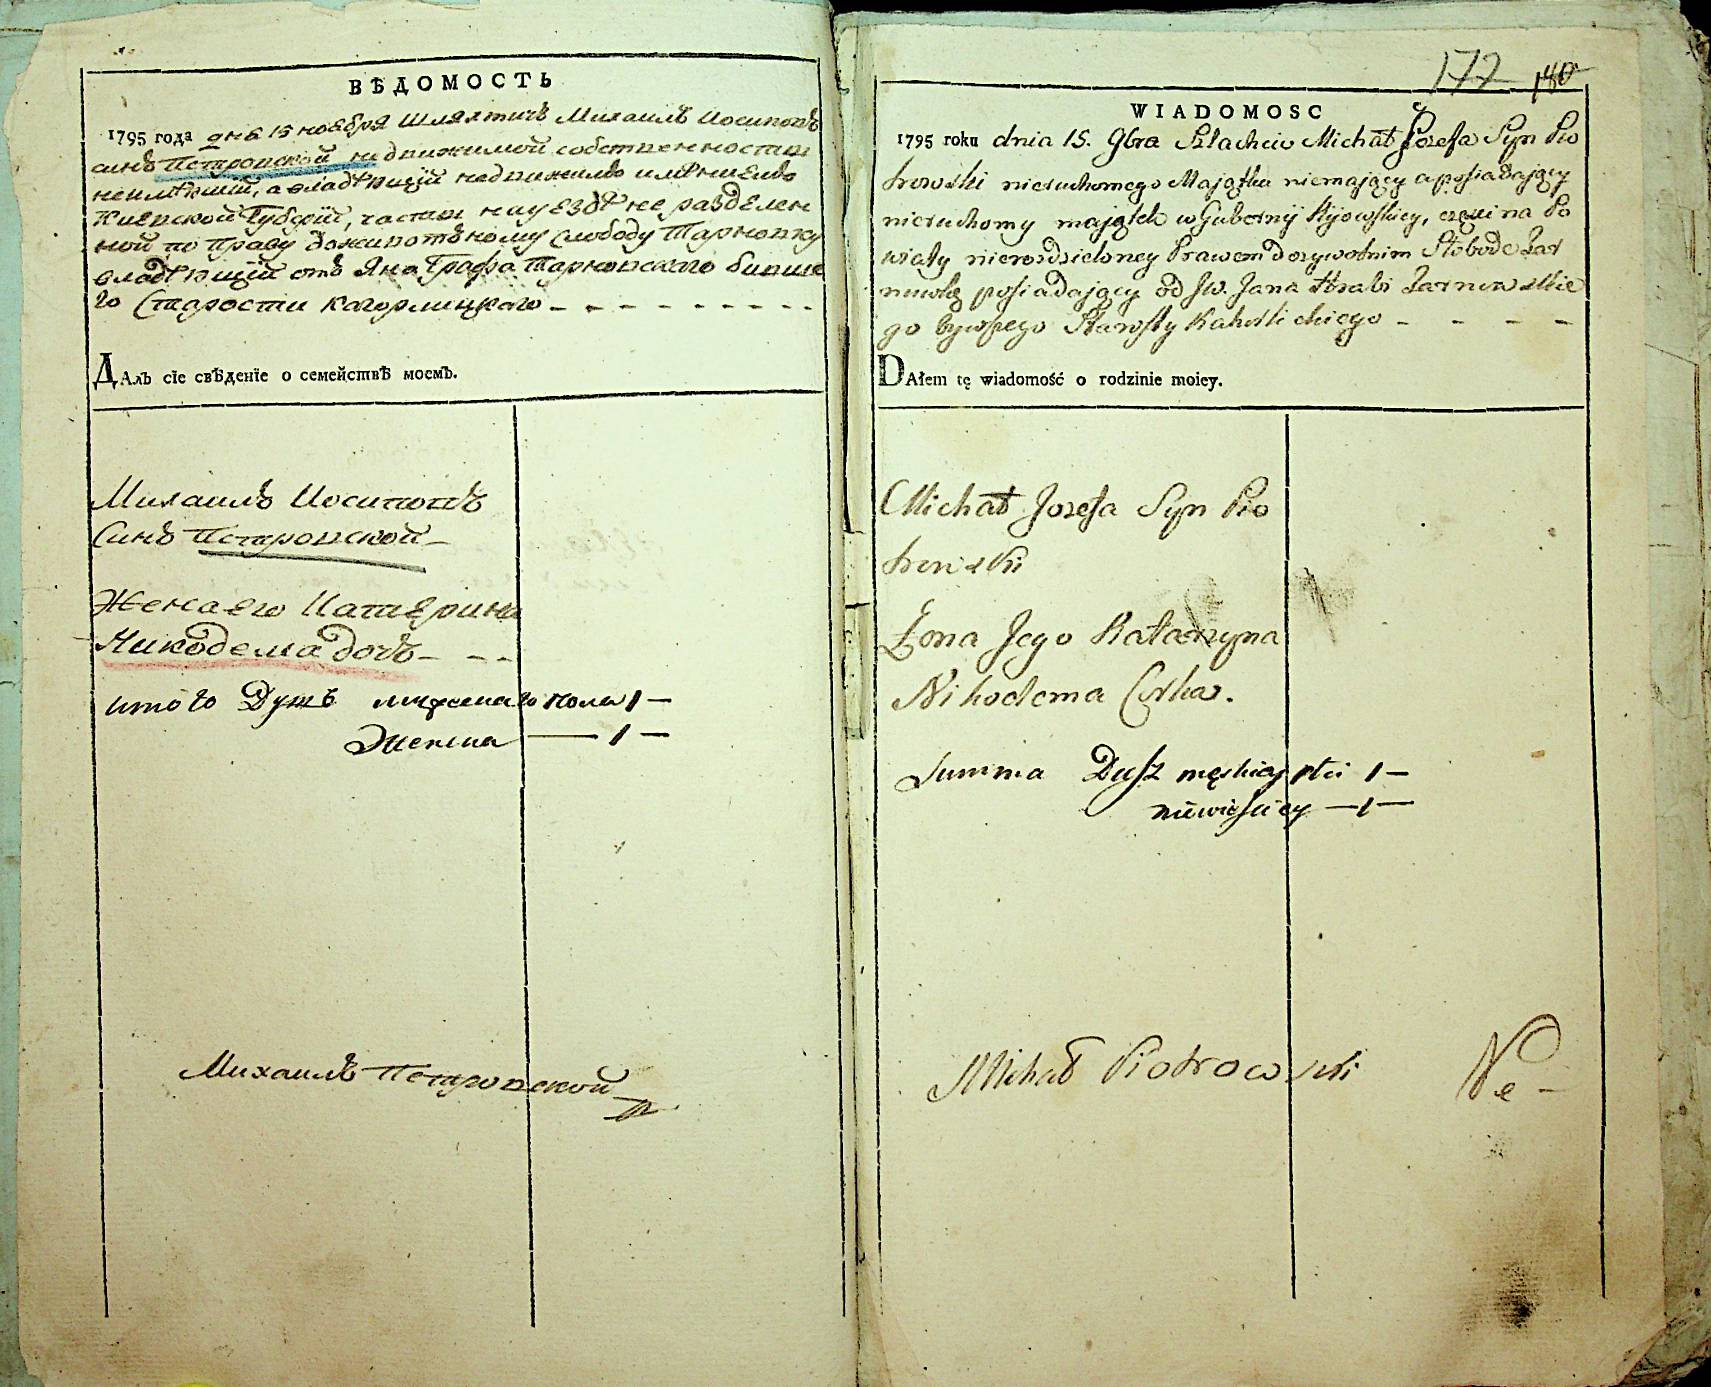 ВѢДОМОСТЬ
1795 года дня 15 ноября Шляхтичъ Михаилъ Иосиповъ
синъ Петровской недвижимой собственности
неимѣющій, а владѣющій недвижимъ имѣниемъ
Киевской Губерніи, части науездъ не разделен
ной по праву доживотъному слободу Тарновку
владѣющій отъ Яна Графа Тарновского бивше
го Старости Кагорлицкого
ДАлъ сїе свѣденїе о семействѣ моемъ.
Михаилъ Иосиповъ
Синъ Петровской
Жена его Катерина
Никодема дочь
итого Душъ мужеска го пола 1
Женска 1
Михаилъ Петровской
177 180
WIADOMOSC
1795 roku dnia 15. 9bra Szlachcic Michał Jozefa Syn Pio
trowski nieruchomego Majątku niemaiący a posiadaiący
nieruchomy majątek w Gubernij Kijowskiey, części na Po
wiaty nierozdzieloney Prawem dozywotnim Słobode Tar
nowkę posiadaiący od Jw. Jana Hrabi Tarnowskie
go bywszego Starosty Kaharlickiego
DAłem tę wiadomość o rodzinie moiey.
Michał Jozefa Syn Pio
trowski
Zona Jego Katarzyna
Nikodema Corka.
Summa Dusz męskiey płci 1
niewieściey 1
Michał Piotrowski